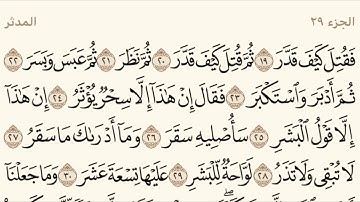 الجزء ٢٩ المدثر
فَقُتِلَ كَيْفَ قَدَّرَ ١٩ ثُمَّ قُتِلَ كَيْفَ قَدَّرَ ٢٠ ثُمَّ نَظَرَ ٢١ ثُمَّ عَبَسَ وَبَسَرَ ٢٢
ثُمَّ أَدْبَرَ وَٱسْتَكْبَرَ ٢٣ فَقَالَ إِنْ هَٰذَآ إِلَّا سِحْرٌ يُؤْثَرُ ٢٤ إِنْ هَٰذَآ
إِلَّا قَوْلُ ٱلْبَشَرِ ٢٥ سَأُصْلِيهِ سَقَرَ ٢٦ وَمَآ أَدْرَىٰكَ مَا سَقَرُ ٢٧
لَا تُبْقِى وَلَا تَذَرُ ٢٨ لَوَّاحَةٌ لِّلْبَشَرِ ٢٩ عَلَيْهَا تِسْعَةَ عَشَرَ ٣٠ وَمَا جَعَلْنَآ